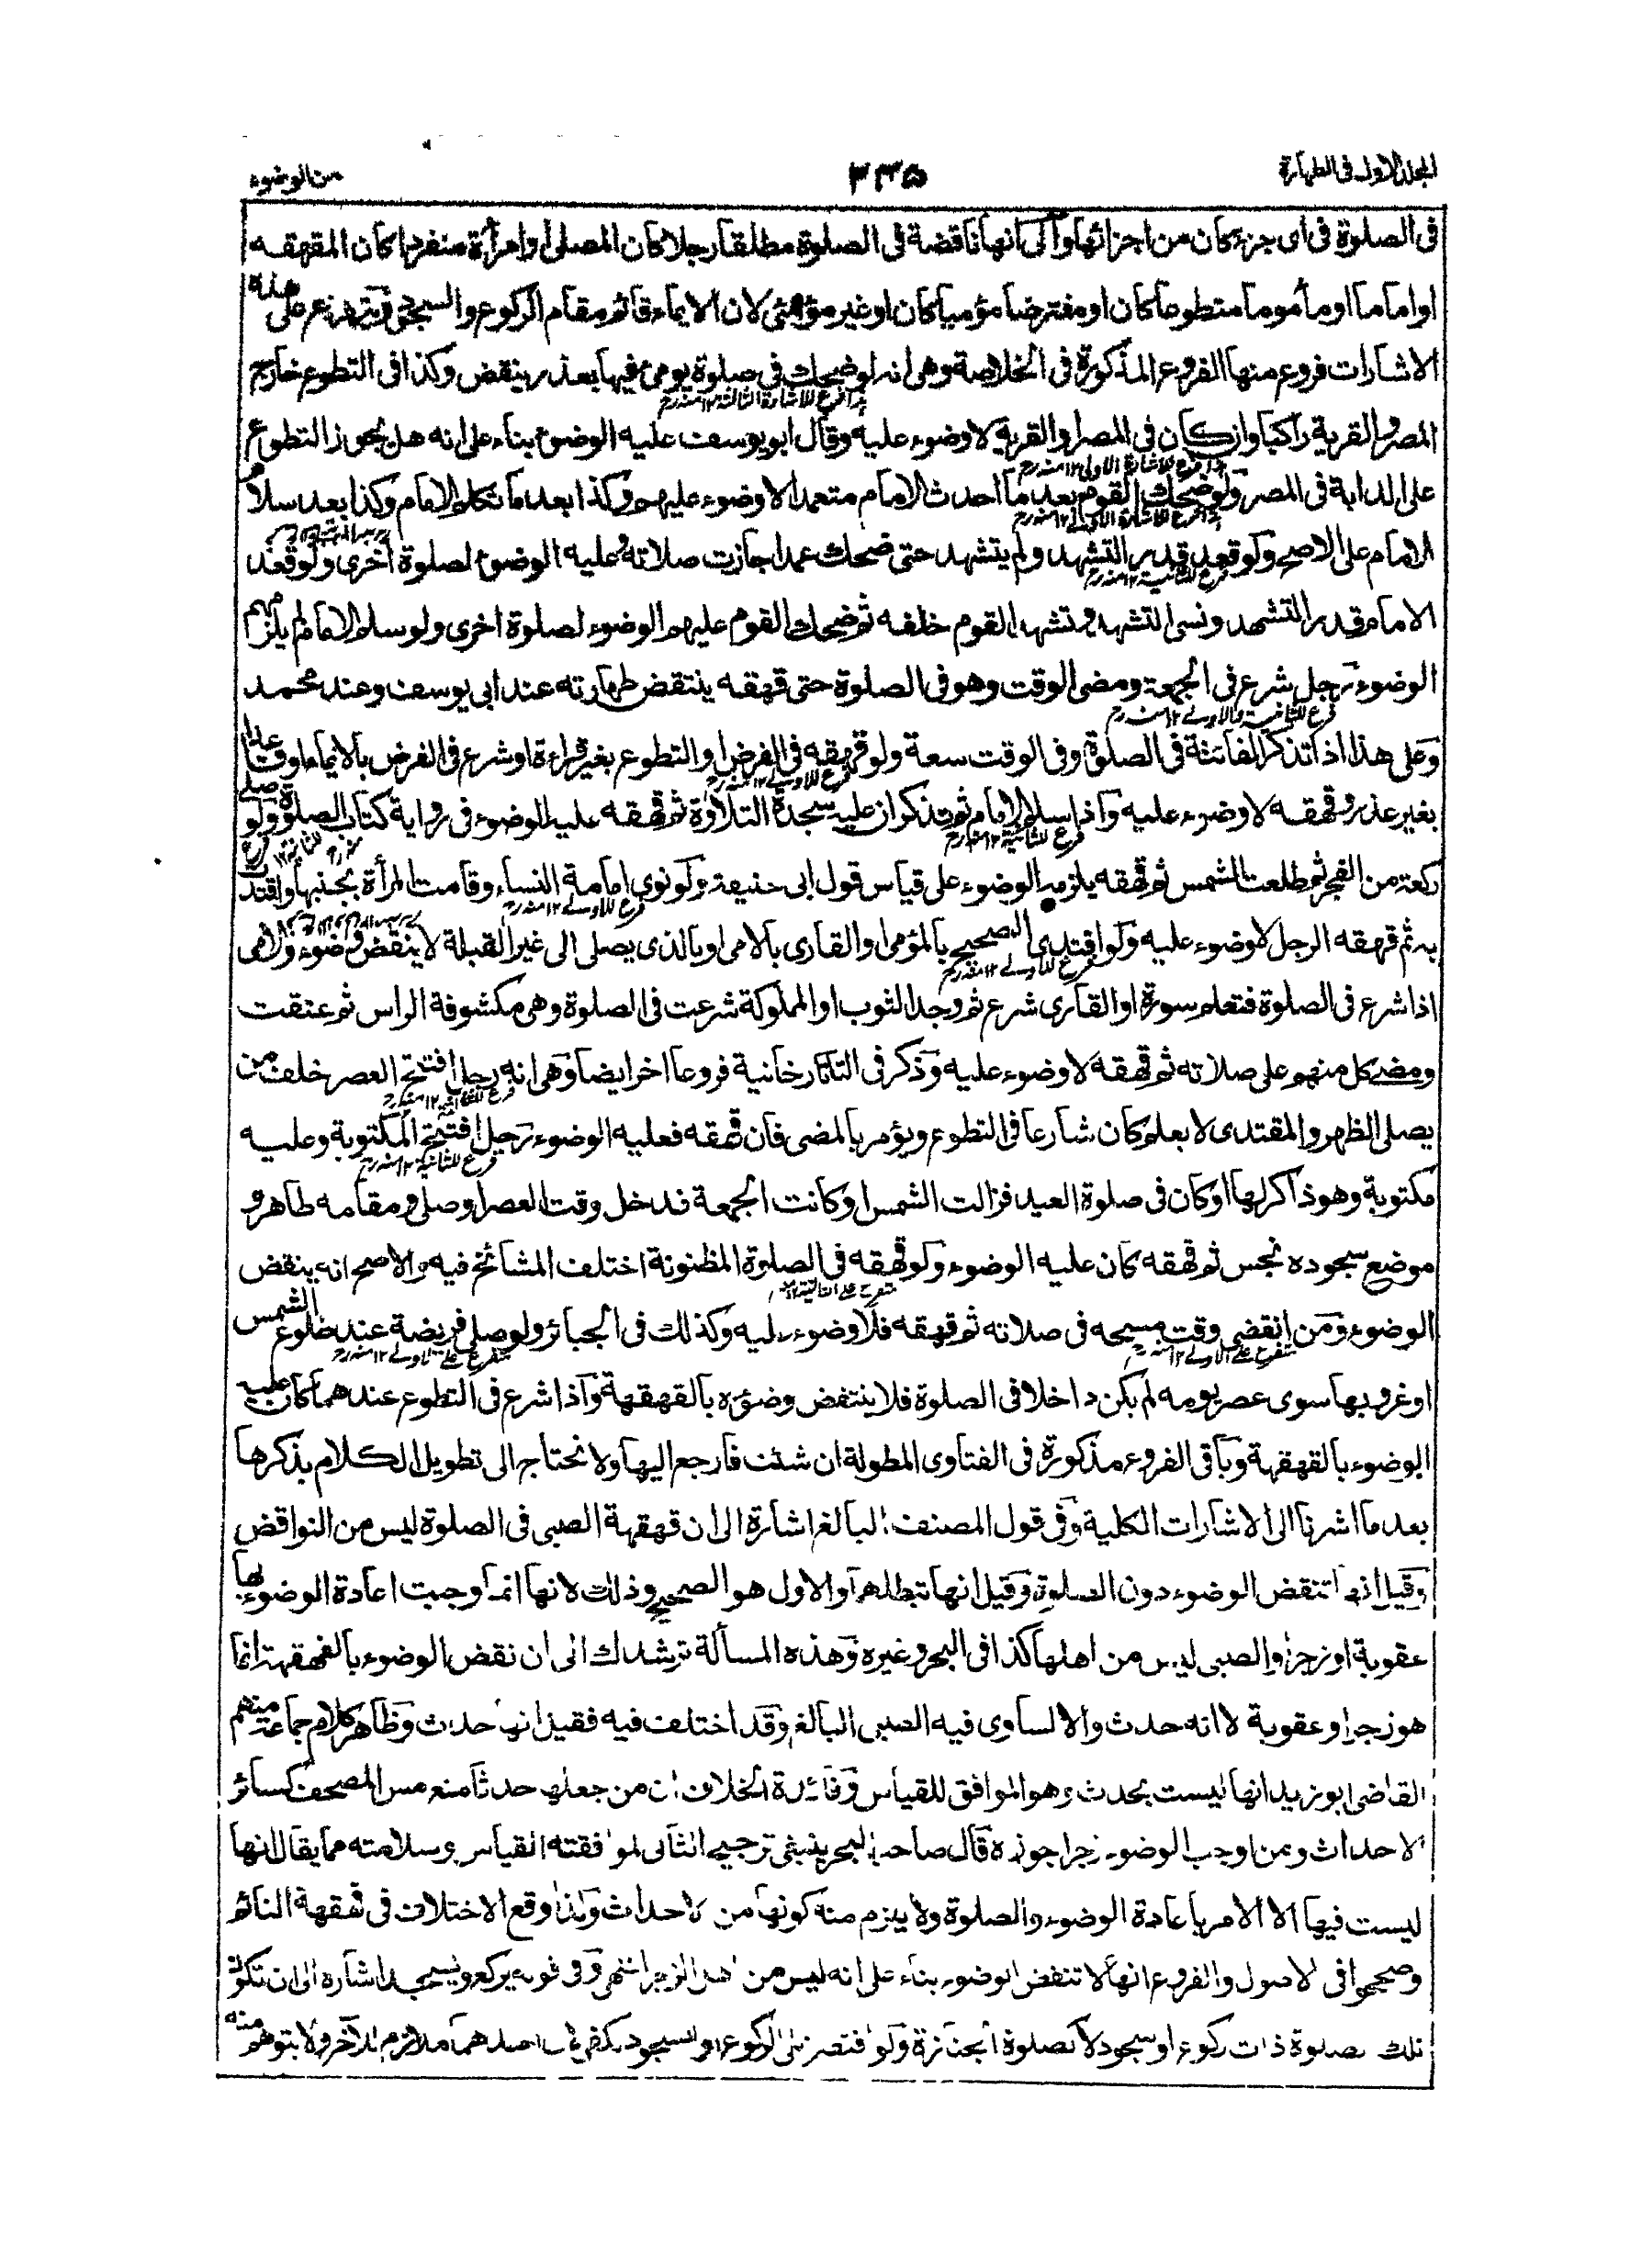 المجلد الاول فى الطهارة
٣٣٥
من الوضوء
فى الصلوة فى اى جزء كان من اجزائها والى انها ناقضة فى الصلوة مطلقا رجلا كان المصلى او امرأة منفردا كان المقهقه
او اماما او مأموما متطوعا كان او مفترضا مؤميا كان او غير مؤمئ لان الايماء قائم مقام الركوع والسجود ويتفرع على هذه
الاشارات فروع منها الفروع المذكورة فى الخلاصة وهى انه لو ضحك فى صلوة يومئ فيها بعذر ينقض وكذا فى التطوع خارج
هذا فرع للاشارة الثالثة ١٢ منه رح
المصر والقرية راكبا وان كان فى المصر او القرية لا وضوء عليه وقال ابو يوسف عليه الوضوء بناء على انه هل يجوز التطوع
هذا فرع للاشارة الاولى ١٢ منه رح
على الدابة فى المصر ولو ضحك القوم بعد ما احدث الامام متعمدا لا وضوء عليهم وكذا بعد ما تكلم الامام وكذا بعد سلام
هذا فرع للاشارة الاولى ١٢ منه رح
الامام على الاصح ولو قعد قدر التشهد ولم يتشهد حتى ضحك عمدا جازت صلاته وعليه الوضوء لصلوة اخرى ولو قعد
فرع للثانية ١٢ منه رح
الامام قدر التشهد ونسى التشهد وتشهد القوم خلفه ثم ضحك القوم عليهم الوضوء لصلوة اخرى ولو سلم الامام لم يلزمهم
الوضوء رجل شرع فى الجمعة ومضى الوقت وهو فى الصلوة حتى قهقه ينتقض طهارته عند ابى يوسف وعند محمد
فرع للثانية والاولى ١٢ منه رح
وعلى هذا اذا تذكر الفائتة فى الصلوة وفى الوقت سعة ولو قهقه فى الفرض او التطوع بغير قراءة او شرع فى الفرض بالايماء او
فرع للاولى ١٢ منه رح
بغير عذر وقهقه لا وضوء عليه واذا سلم الامام ثم تذكر ان عليه سجدة التلاوة ثم قهقه عليه الوضوء فى رواية كتاب الصلوة ولو صلى
فرع للثانية ١٢ منه رح
ركعة من الفجر ثم طلعت الشمس ثم قهقه يلزمه الوضوء على قياس قول ابى حنيفة ولو نوى امامة النساء وقامت المرأة بجنبها واقتدت
فرع للاولى ١٢ منه رح
به ثم قهقه الرجل لا وضوء عليه ولو اقتدى الصحيح بالمؤمى او القارى بالامى او بالذى يصلى الى غير القبلة لا ينقض وضوءه والامى
فرع للاولى ١٢ منه رح
اذا شرع فى الصلوة فتعلم سورة او القارى شرع ثم وجد الثوب او المملوكة شرعت فى الصلوة وهى مكشوفة الراس ثم عتقت
ومضى كل منهم على صلاته ثم قهقه لا وضوء عليه وذكر فى التاتارخانية فروعا اخر ايضا وهى انه رجل افتتح العصر خلف من
فرع للثانية ١٢ منه رح
يصلى الظهر والمقتدى لا يعلم كان شارعا فى التطوع ويؤمر بالمضى فان قهقه فعليه الوضوء رجل افتتح المكتوبة وعليه
فرع للثانية ١٢ منه رح
مكتوبة وهو ذاكر لها او كان فى صلوة العيد فزالت الشمس او كانت الجمعة فدخل وقت العصر او صلى ومقامه طاهر و
موضع سجوده نجس ثم قهقه كان عليه الوضوء ولو قهقه فى الصلوة المظنونة اختلف المشائخ فيه والاصح انه ينقض
متفرع على الثانية ١٢
الوضوء ومن انقضى وقت مسحه فى صلاته ثم قهقه فلا وضوء عليه وكذلك فى الجبائر ولو صلى فريضة عند طلوع الشمس
متفرع على الاولى ١٢ منه رح متفرع على الاولى ١٢ منه رح
او غروبها سوى عصر يومه لم يكن داخلا فى الصلوة فلا ينتقض وضؤه بالقهقهة واذا شرع فى التطوع عندهما كان عليه
الوضوء بالقهقهة وباقى الفروع مذكورة فى الفتاوى المطولة ان شئت فارجع اليها ولا نحتاج الى تطويل الكلام بذكرها
بعد ما اشرنا الى الاشارات الكلية وفى قول المصنف البالغ اشارة الى ان قهقهة الصبى فى الصلوة ليس من النواقض
وقيل انها تنقض الوضوء دون الصلوة وقيل انها تبطلهما والاول هو الصحيح وذلك لانها انما وجبت اعادة الوضوء بها
عقوبة او زجرا والصبى ليس من اهلها كذا فى البحر وغيره وهذه المسألة ترشدك الى ان نقض الوضوء بالقهقهة انما
هو زجر او عقوبة لا انه حدث والا لساوى فيه الصبى البالغ وقد اختلف فيه فقيل انها حدث وظاهر كلام جماعة منهم
القاضى ابو زيد انها ليست بحدث وهو الموافق للقياس وفائدة الخلاف ان من جعلها حدثا منع مس المصحف كسائر
الاحداث ومن اوجب الوضوء زجرا جوزه قال صاحب البحر ينبغى ترجيح الثانى لموافقته القياس وسلامته مما يقال انها
ليست فيها الا الامر باعادة الوضوء والصلوة ولا يلزم منه كونها من الاحداث ولذا وقع الاختلاف فى قهقهة النائم
وصححوا فى الاصول والفروع انها لا تنقض الوضوء بناء على انه ليس من اهل الزجر انتهى وفى قوله يركع ويسجد اشارة الى ان تكون
تلك صلوة ذات ركوع او سجود لا كصلوة الجنازة ولو اقتصر على الركوع او السجود لكفى فان احدهما ملازم للآخر ولا يتوهم منه